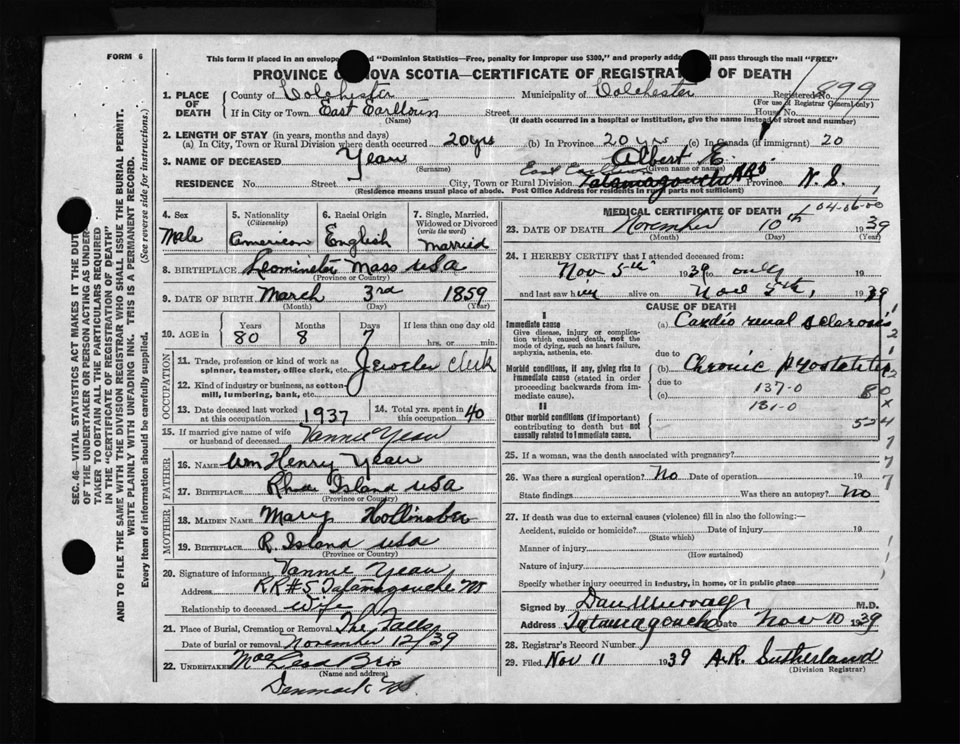 FORM 6
This form if placed in an envelope "Dominion Statistics—Free, penalty for improper use $300," and properly addressed will pass through the mail "FREE"
PROVINCE OF NOVA SCOTIA—CERTIFICATE OF REGISTRATION OF DEATH
1. PLACE OF DEATH County of Colchester Municipality of Colchester Registered No. 899
(For use of Registrar General only)
If in City or Town East Earltown Street House No.
(Name) (If death occurred in a hospital or institution, give the name instead of street and number)
2. LENGTH OF STAY (in years, months and days)
(a) In City, Town or Rural Division where death occurred 20 yrs (b) In Province 20 yrs (c) In Canada (if immigrant) 20
3. NAME OF DECEASED Yeaw Albert E.
(Surname) (Given name or names)
RESIDENCE No. Street City, Town or Rural Division East Earltown Tatamagouche RR5 Province N.S.
(Residence means usual place of abode. Post Office Address for residents in rural parts not sufficient.)
4. Sex Male
5. Nationality (Citizenship) American
6. Racial Origin English
7. Single, Married, Widowed or Divorced (write the word) Married
8. BIRTHPLACE Leominster Mass USA
(Province or Country)
9. DATE OF BIRTH March 3rd 1859
(Month) (Day) (Year)
10. AGE in Years 80 Months 8 Days 7 If less than one day old hrs. or min.
OCCUPATION
11. Trade, profession or kind of work as spinner, teamster, office clerk, etc. Jeweler clerk
12. Kind of industry or business, as cotton-mill, lumbering, bank, etc.
13. Date deceased last worked at this occupation 1937 14. Total yrs. spent in this occupation 40
15. If married give name of wife or husband of deceased Vannie Yeaw
FATHER
16. NAME Wm Henry Yeaw
17. BIRTHPLACE Rhode Island USA
(Province or Country)
MOTHER
18. MAIDEN NAME Mary
19. BIRTHPLACE R. Island USA
(Province or Country)
20. Signature of informant Vannie Yeaw
Address RR#5 Tatamagouche NS
Relationship to deceased Wife
21. Place of Burial, Cremation or Removal The Falls
Date of burial or removal November 12/39
22. UNDERTAKER Bros
(Name and address)
Denmark NS
MEDICAL CERTIFICATE OF DEATH 04-06-00
23. DATE OF DEATH November 10th 1939
(Month) (Day) (Year)
24. I HEREBY CERTIFY that I attended deceased from:
Nov 5th 1939 to only
and last saw him alive on Nov 5th, 1939
CAUSE OF DEATH
I
Immediate cause
Give disease, injury or complication which caused death, not the mode of dying, such as heart failure, asphyxia, asthenia, etc.
(a) Cardio renal sclerosis
due to
Morbid conditions, if any, giving rise to immediate cause (stated in order proceeding backwards from immediate cause).
(b) Chronic prostatitis
due to 137-0
(c) 131-0
II
Other morbid conditions (if important) contributing to death but not causally related to immediate cause.
25. If a woman, was the death associated with pregnancy?
26. Was there a surgical operation? No Date of operation 19
State findings Was there an autopsy? No
27. If death was due to external causes (violence) fill in also the following:—
Accident, suicide or homicide? Date of injury 19
(State which)
Manner of injury
(How sustained)
Nature of injury
Specify whether injury occurred in industry, in home, or in public place
Signed by Dan Murray M.D.
Address Tatamagouche Date Nov 10 1939
28. Registrar's Record Number
29. Filed Nov 11 1939 A.R. Sutherland
(Division Registrar)
SEC. 46—VITAL STATISTICS ACT MAKES IT THE DUTY OF THE UNDERTAKER OR PERSON ACTING AS UNDERTAKER TO OBTAIN ALL THE PARTICULARS REQUIRED IN THE "CERTIFICATE OF REGISTRATION OF DEATH"
AND TO FILE THE SAME WITH THE DIVISION REGISTRAR WHO SHALL ISSUE THE BURIAL PERMIT.
WRITE PLAINLY WITH UNFADING INK. THIS IS A PERMANENT RECORD.
Every item of information should be carefully supplied. (See reverse side for instructions.)